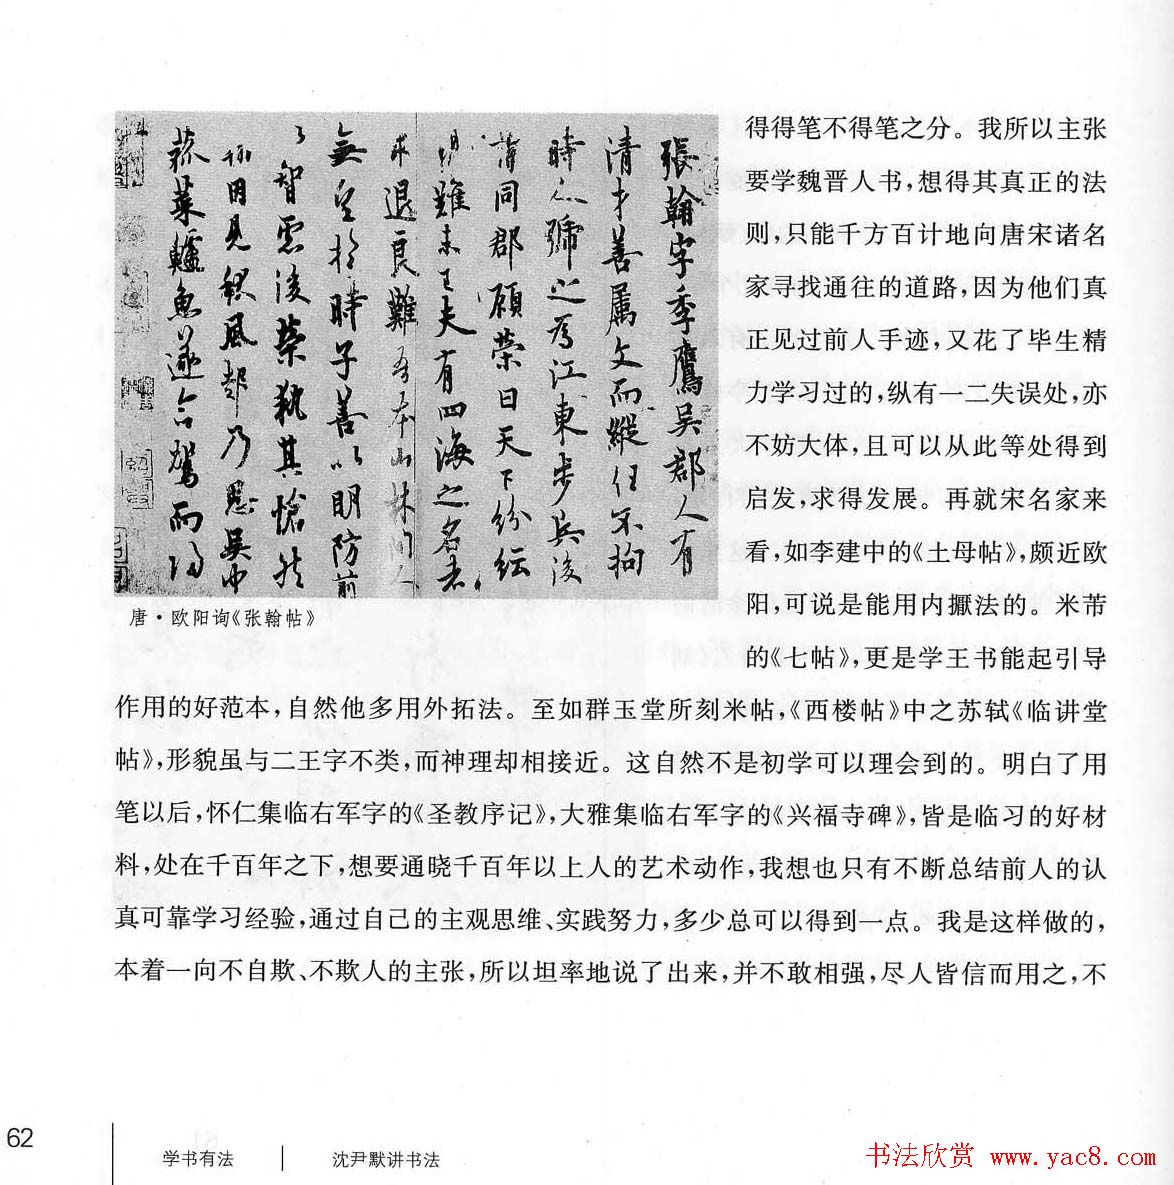 張翰字季鷹吳郡人有
清才善属文而縱任不拘
時人號之為江東步兵後
謂同郡顧榮曰天下紛紜
禍難未已夫有四海之名者
求退良難吾本山林間人
無望於時子善以明防前
以智慮後榮執其愴然
翰因見秋風起乃思吳中
菰菜鱸魚遂命駕而歸
唐·欧阳询《张翰帖》
得得笔不得笔之分。我所以主张
要学魏晋人书，想得其真正的法
则，只能千方百计地向唐宋诸名
家寻找通往的道路，因为他们真
正见过前人手迹，又花了毕生精
力学习过的，纵有一二失误处，亦
不妨大体，且可以从此等处得到
启发，求得发展。再就宋名家来
看，如李建中的《土母帖》，颇近欧
阳，可说是能用内擫法的。米芾
的《七帖》，更是学王书能起引导
作用的好范本，自然他多用外拓法。至如群玉堂所刻米帖，《西楼帖》中之苏轼《临讲堂
帖》，形貌虽与二王字不类，而神理却相接近。这自然不是初学可以理会到的。明白了用
笔以后，怀仁集临右军字的《圣教序记》，大雅集临右军字的《兴福寺碑》，皆是临习的好材
料，处在千百年之下，想要通晓千百年以上人的艺术动作，我想也只有不断总结前人的认
真可靠学习经验，通过自己的主观思维、实践努力，多少总可以得到一点。我是这样做的，
本着一向不自欺、不欺人的主张，所以坦率地说了出来，并不敢相强，尽人皆信而用之，不
62
学书有法
沈尹默讲书法
书法欣赏 www.yac8.com